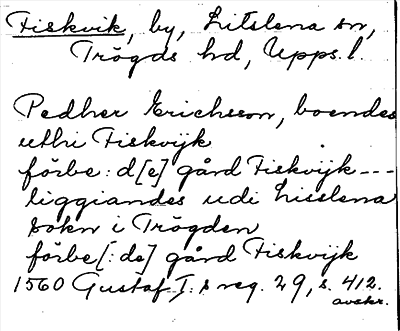 Fiskvik, by, Litslena sn,
Trögds hd, Upps. l.
Pedher Erichsson, boendes
uthi Fiskvijk
förbe: d[e] gård Fiskvijk ---
liggiandes udi Lisslena
sokn i Trögden
förbe[: de] gård Fiskvijk
1560 Gustaf I: s reg. 29, s. 412.
avskr.